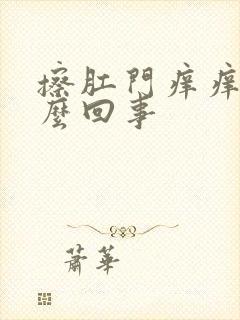 擦肛門痒痒
麼回事
蕭華